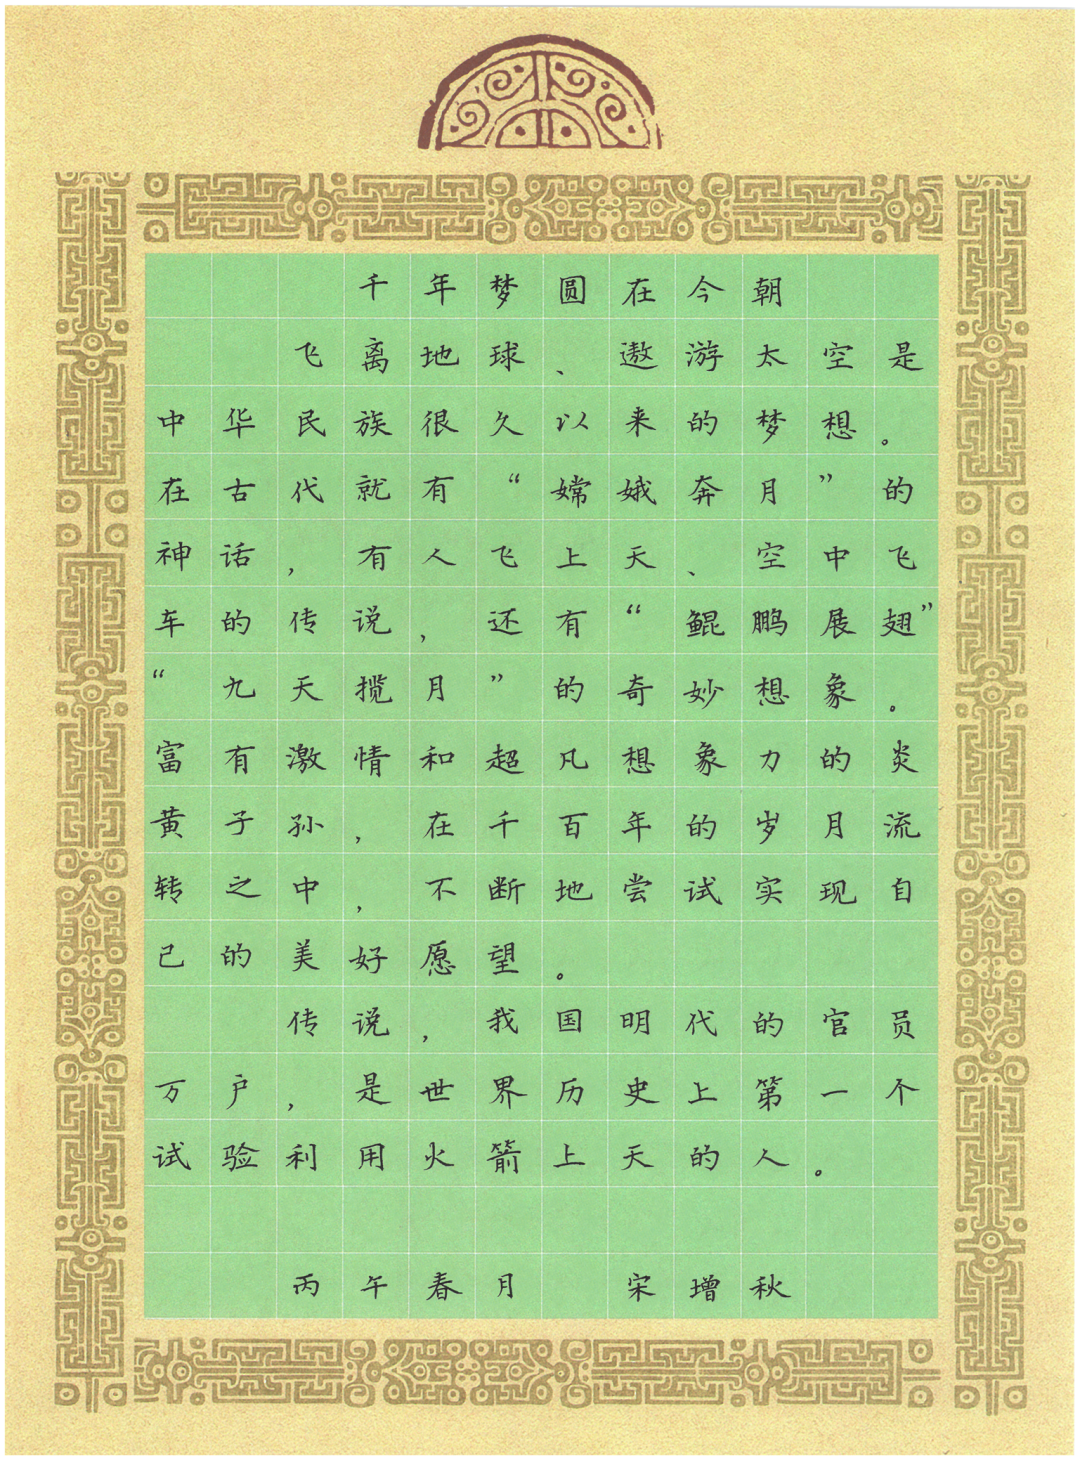 千年梦圆在今朝
飞离地球、遨游太空是
中华民族很久以来的梦想。
在古代就有“嫦娥奔月”的
神话，有人飞上天、空中飞
车的传说，还有“鲲鹏展翅”
“九天揽月”的奇妙想象。
富有激情和超凡想象力的炎
黄子孙，在千百年的岁月流
转之中，不断地尝试实现自
己的美好愿望。
传说，我国明代的官员
万户，是世界历史上第一个
试验利用火箭上天的人。
丙午春月 宋增秋